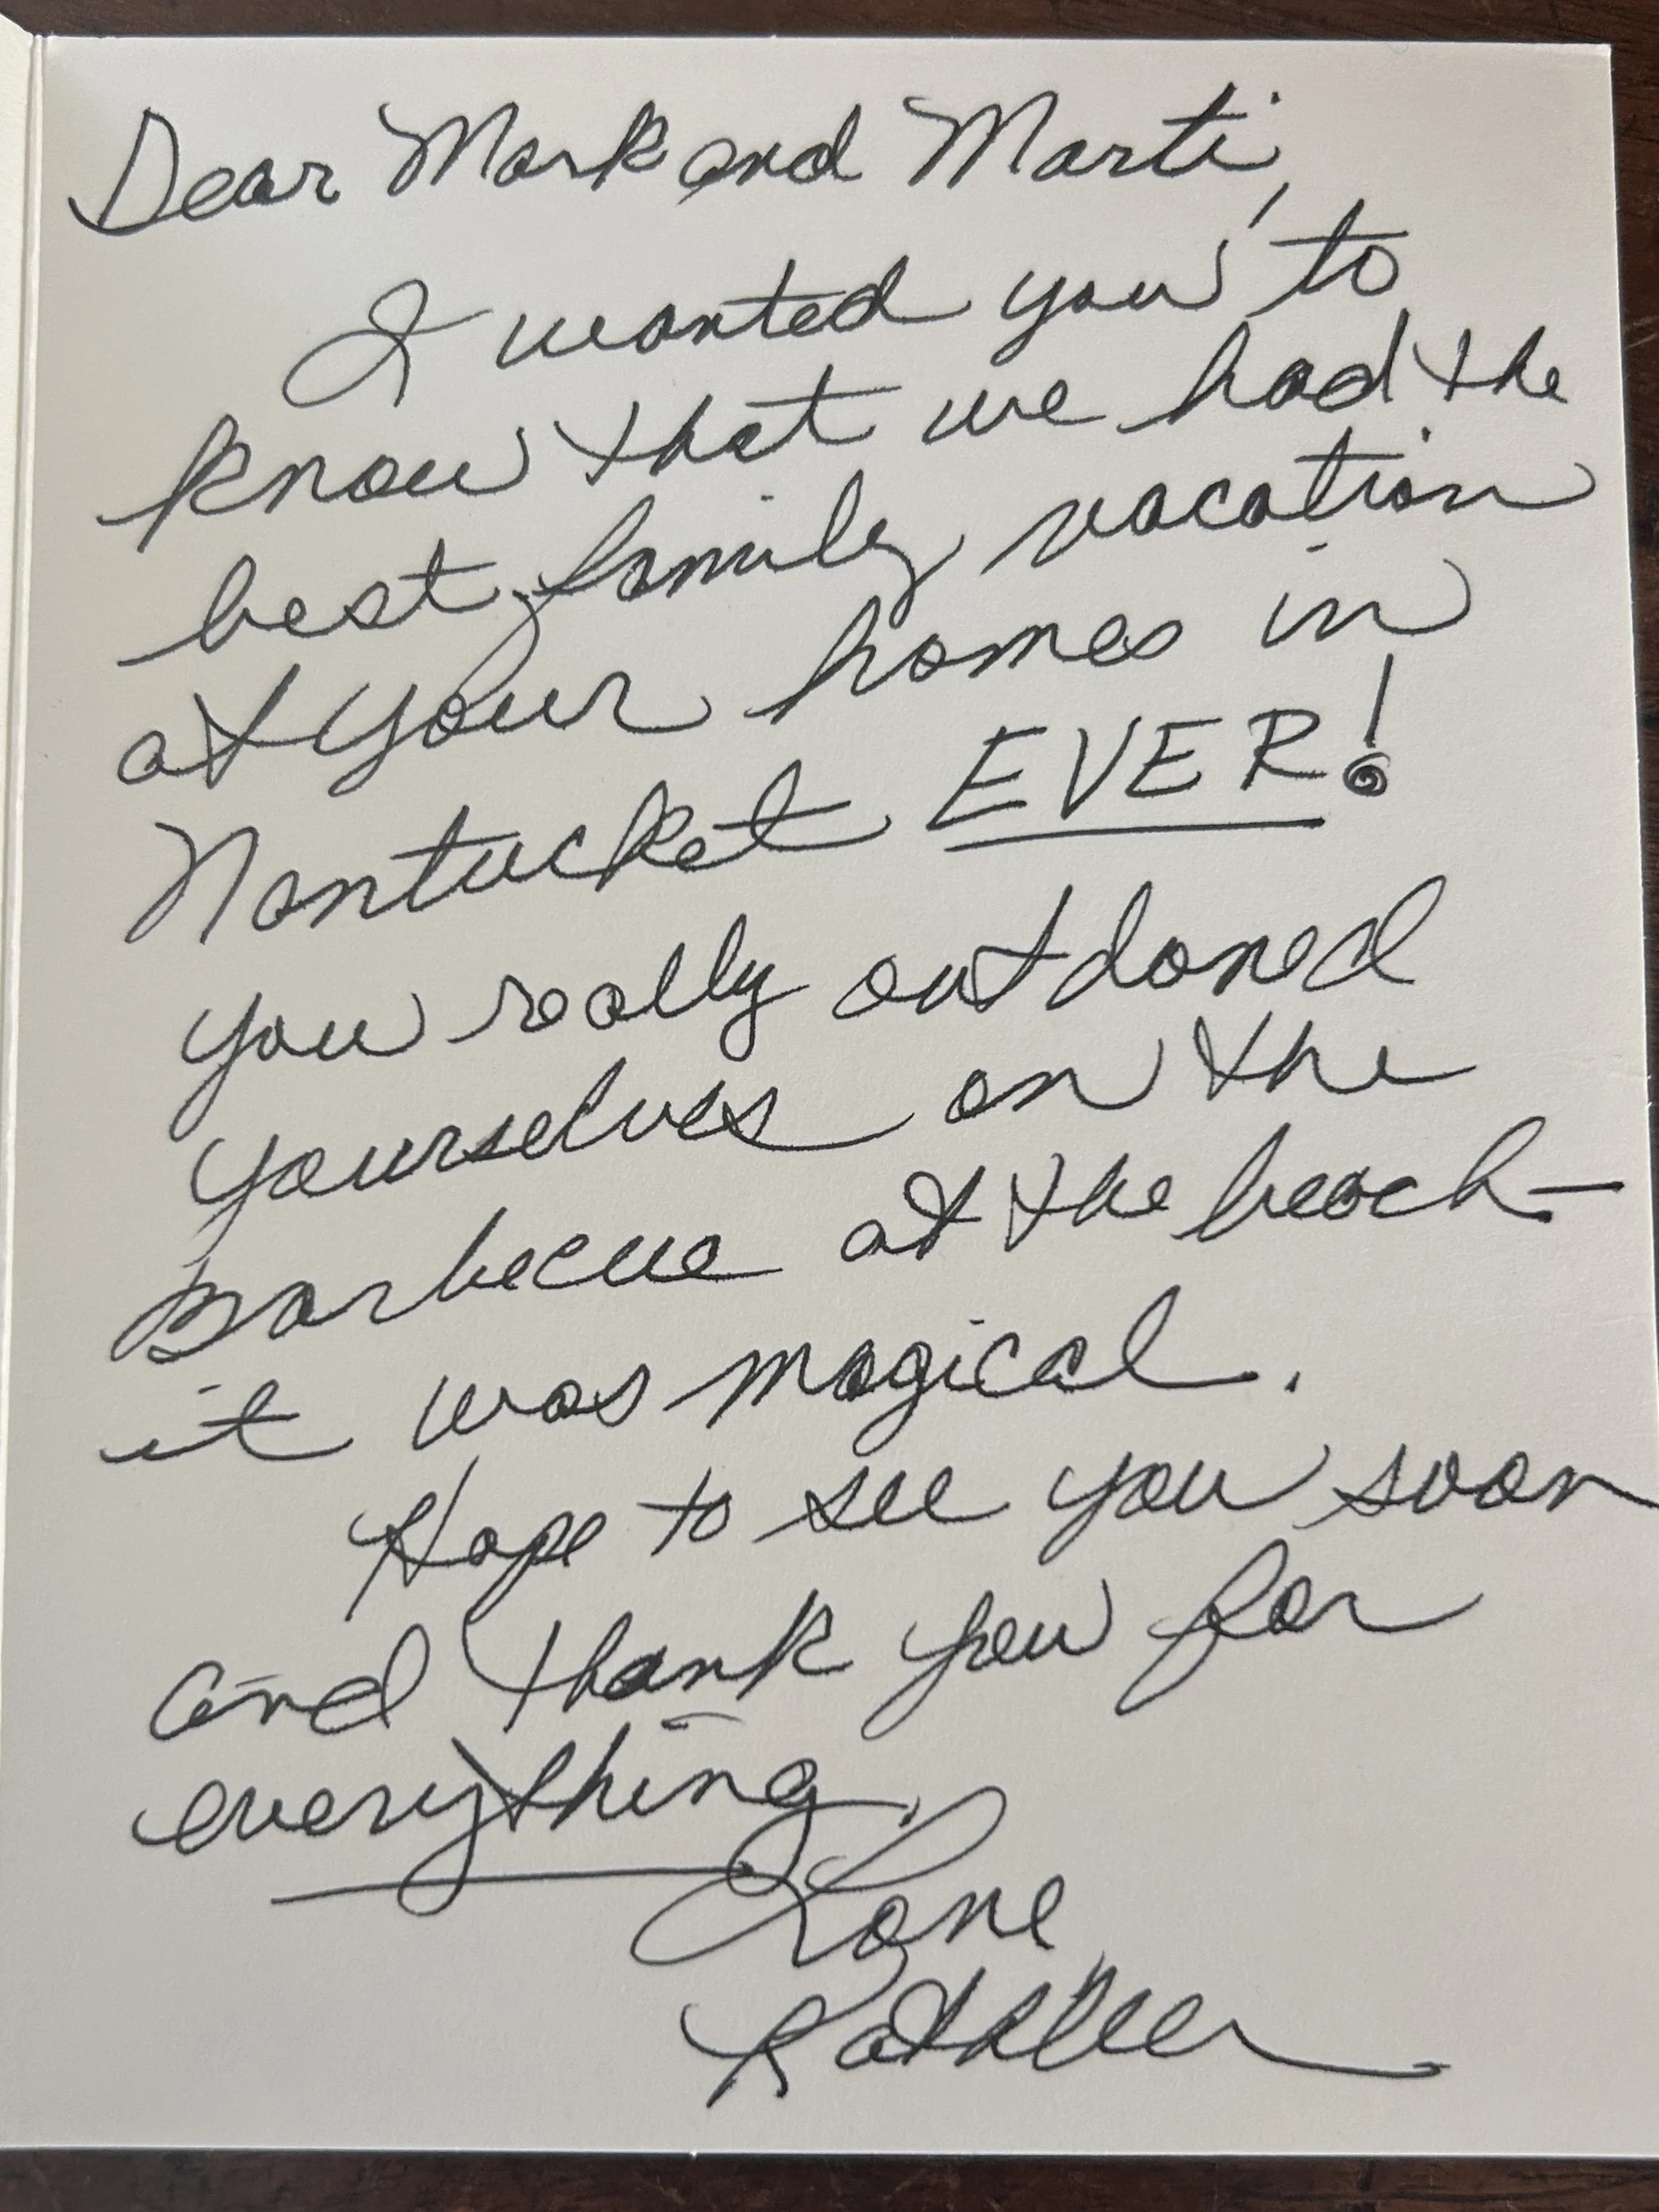 Dear Mark and Marti,
I wanted you to
know that we had the
best family vacation
at your homes in
Nantucket EVER!
you really outdoned
yourselves on the
Barbecue at the beach—
it was magical.
Hope to see you soon
and thank you for
everything.
Love
Kathleen